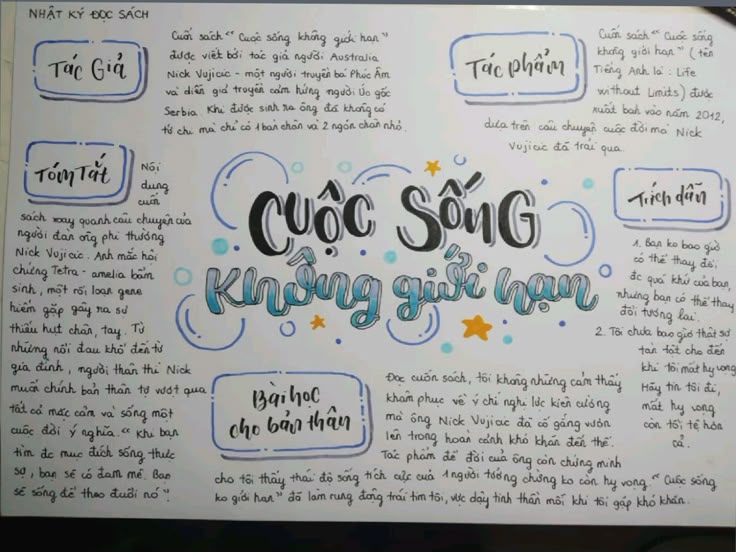 NHẬT KÝ ĐỌC SÁCH
Tác Giả
Cuốn sách "Cuộc sống không giới hạn"
được viết bởi tác giả người Australia
Nick Vujicic - một người truyền bá Phúc Âm
và diễn giả truyền cảm hứng người Úc gốc
Serbia. Khi được sinh ra ông đã không có
tứ chi mà chỉ có 1 bàn chân và 2 ngón chân nhỏ.
Tác phẩm
Cuốn sách "Cuộc sống
không giới hạn" (tên
Tiếng Anh là : Life
without Limits) được
xuất bản vào năm 2012,
dựa trên câu chuyện cuộc đời mà Nick
Vujicic đã trải qua.
Tóm Tắt
Nội
dung
cuốn
sách xoay quanh câu chuyện của
người đàn ông phi thường
Nick Vujicic. Anh mắc hội
chứng Tetra-amelia bẩm
sinh, một rối loạn gene
hiếm gặp gây ra sự
thiếu hụt chân, tay. Từ
những nỗi đau khổ đến từ
gia đình, người thân thì Nick
muốn chính bản thân tự vượt qua
tất cả mặc cảm và sống một
cuộc đời ý nghĩa. "Khi bạn
tìm đc mục đích sống thực
sự, bạn sẽ có đam mê. Bạn
sẽ sống để theo đuổi nó".
CUỘC SỐNG
không giới hạn
Trích dẫn
1. Bạn ko bao giờ
có thể thay đổi
đc quá khứ của bạn,
nhưng bạn có thể thay
đổi tương lai.
2. Tôi chưa bao giờ thật sự
tàn tật cho đến
khi tôi mất hy vọng
Hãy tin tôi đi,
mất hy vọng
còn tồi tệ hơn
cả.
Bài học
cho bản thân
Đọc cuốn sách, tôi không những cảm thấy
khâm phục về ý chí nghị lực kiên cường
mà ông Nick Vujicic đã cố gắng vươn
lên trong hoàn cảnh khó khăn đến thế.
Tác phẩm để đời của ông còn chứng minh
cho tôi thấy thái độ sống tích cực của 1 người tưởng chừng ko còn hy vọng. "Cuộc sống
ko giới hạn" đã làm rung động trái tim tôi, vực dậy tinh thần mỗi khi tôi gặp khó khăn.